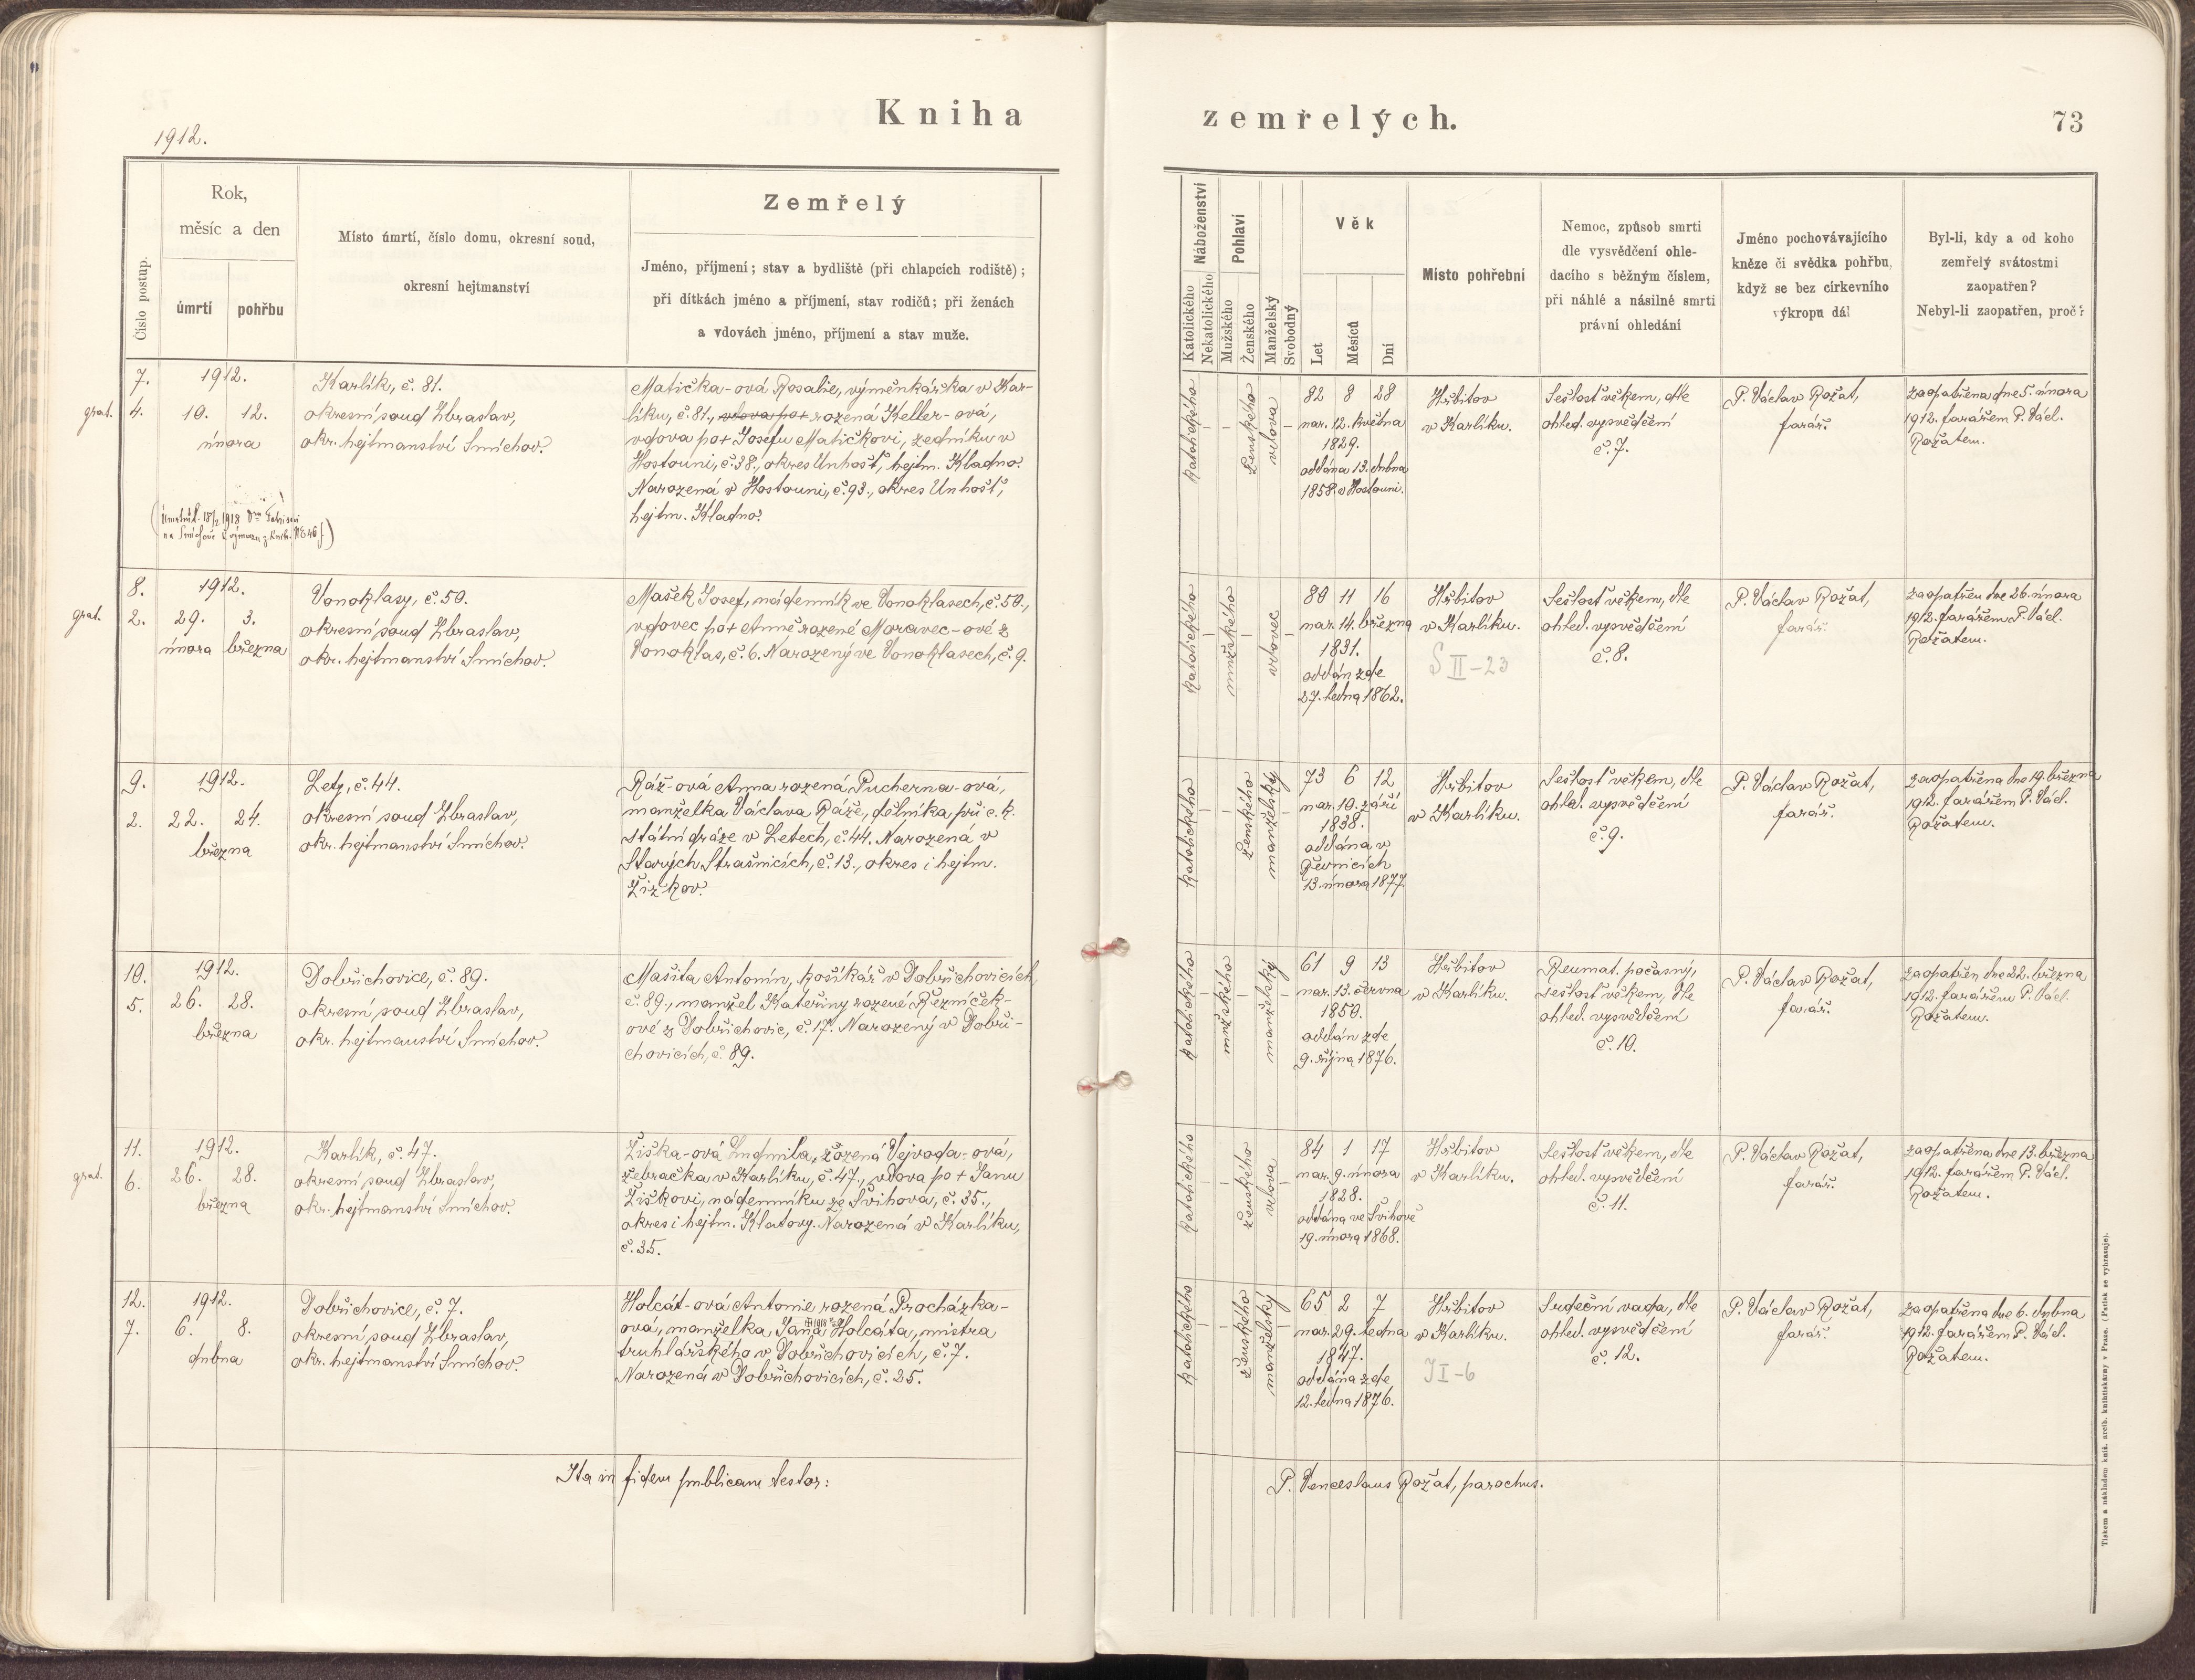 Kniha
1912.
Číslo postup.
Rok,
měsíc a den
úmrtí
pohřbu
Místo úmrtí, číslo domu, okresní soud,
okresní hejtmanství
Zemřelý
Jméno, příjmení; stav a bydliště (při chlapcích rodiště);
při dítkách jméno a příjmení, stav rodičů; při ženách
a vdovách jméno, příjmení a stav muže.
7.
grat. 4.
1912.
10. 12.
února
Karlík, č. 81.
okresní soud Zbraslav,
okr. hejtmanství Smíchov.
Matička-ová Rosalie, výměnkářka v Kar-
líku, č. 81., vdova po + rozená Keller-ová,
vdova po + Josefu Matičkovi, zedníku v
Hostouni, č. 38., okres Unhošť, hejtm. Kladno.
Narozená v Hostouni, č. 93., okres Unhošť,
hejtm. Kladno.
8.
grat. 2.
1912.
29. 3.
února března
Vonoklasy, č. 50.
okresní soud Zbraslav,
okr. hejtmanství Smíchov.
Mašek Josef, nádenník ve Vonoklasech, č. 50.,
vdovec po + Anně rozené Moravec-ové z
Vonoklas, č. 6. Narozený ve Vonoklasech, č. 9.
9.
2.
1912.
22. 24.
března
Lety, č. 44.
okresní soud Zbraslav,
okr. hejtmanství Smíchov.
Ráž-ová Anna rozená Pucherna-ová,
manželka Václava Ráže, dělníka při c. k.
státní dráze v Letech, č. 44. Narozená v
Starých Strašnicích, č. 13., okres i hejtm.
Žižkov.
10.
5.
1912.
26. 28.
března
Dobřichovice, č. 89.
okresní soud Zbraslav,
okr. hejtmanství Smíchov.
Mašita Antonín, košíkář v Dobřichovicích,
č. 89., manžel Kateřiny rozené Řezníček-
ové z Dobřichovic, č. 17. Narozený v Dobři-
chovicích, č. 89.
11.
grat. 6.
1912.
26. 28.
března
Karlík, č. 47.
okresní soud Zbraslav,
okr. hejtmanství Smíchov.
Žiška-ová Ludmila, rozená Vejvoda-ová,
žebračka v Karlíku, č. 47., vdova po + Janu
Žiškovi, nádenníku ze Švihova, č. 35.,
okres i hejtm. Klatovy. Narozená v Karlíku,
č. 35.
12.
7.
1912.
6. 8.
dubna
Dobřichovice, č. 7.
okresní soud Zbraslav,
okr. hejtmanství Smíchov.
Holcát-ová Antonie rozená Procházka-
ová, manželka Jana Holcáta, mistra
truhlářského v Dobřichovicích, č. 7.
Narozená v Dobřichovicích, č. 25.
Ita in fidem publicam testor:
zemřelých.
73
Náboženství
Katolického
Nekatolického
Pohlaví
Mužského
Ženského
Manželský
Svobodný
Věk
Let
Měsíců
Dní
Místo pohřební
Nemoc, způsob smrti
dle vysvědčení ohle-
dacího s běžným číslem,
při náhlé a násilné smrti
právní ohledání
Jméno pochovávajícího
kněze či svědka pohřbu,
když se bez církevního
výkropu dál
Byl-li, kdy a od koho
zemřelý svátostmi
zaopatřen?
Nebyl-li zaopatřen, proč?
katolického
ženského
vdova
82 8 28
nar. 12. května
1829.
oddána 13. dubna
1858. v Hostouni.
Hřbitov
v Karlíku.
Sešlosť věkem, dle
ohled. vysvědčení
č. 7.
P. Václav Rožat,
farář.
zaopatřena dne 5. února
1912. farářem P. Václ.
Rožatem.
katolického
mužského
vdovec
80 11 16
nar. 14. března
1831.
oddán zde
27. ledna 1862.
Hřbitov
v Karlíku.
S II-23
Sešlosť věkem, dle
ohled. vysvědčení
č. 8.
P. Václav Rožat,
farář.
zaopatřen dne 26. února
1912. farářem P. Václ.
Rožatem.
katolického
ženského
manželský
73 6 12
nar. 10. září
1838.
oddána v
Řevnicích
13. února 1877.
Hřbitov
v Karlíku.
Sešlosť věkem, dle
ohled. vysvědčení
č. 9.
P. Václav Rožat,
farář.
zaopatřena dne 19. března
1912. farářem P. Václ.
Rožatem.
katolického
mužského
manželský
61 9 13
nar. 13. června
1850.
oddán zde
9. října 1876.
Hřbitov
v Karlíku.
Reumat. počasný,
sešlosť věkem, dle
ohled. vysvědčení
č. 10.
P. Václav Rožat,
farář.
zaopatřen dne 22. března
1912. farářem P. Václ.
Rožatem.
katolického
ženského
vdova
84 1 17
nar. 9. února
1828.
oddána ve Švihově
19. února 1868.
Hřbitov
v Karlíku.
Sešlosť věkem, dle
ohled. vysvědčení
č. 11.
P. Václav Rožat,
farář.
zaopatřena dne 13. března
1912. farářem P. Václ.
Rožatem.
katolického
ženského
manželský
65 2 7
nar. 29. ledna
1847.
oddána zde
12. ledna 1876.
Hřbitov
v Karlíku.
J I-6
Srdeční vada, dle
ohled. vysvědčení
č. 12.
P. Václav Rožat,
farář.
zaopatřena dne 6. dubna
1912. farářem P. Václ.
Rožatem.
P. Venceslaus Rožat, parochus.
Tiskem a nákladem kníž. arcib. knihtiskárny v Praze. (Patisk se vyhrazuje).